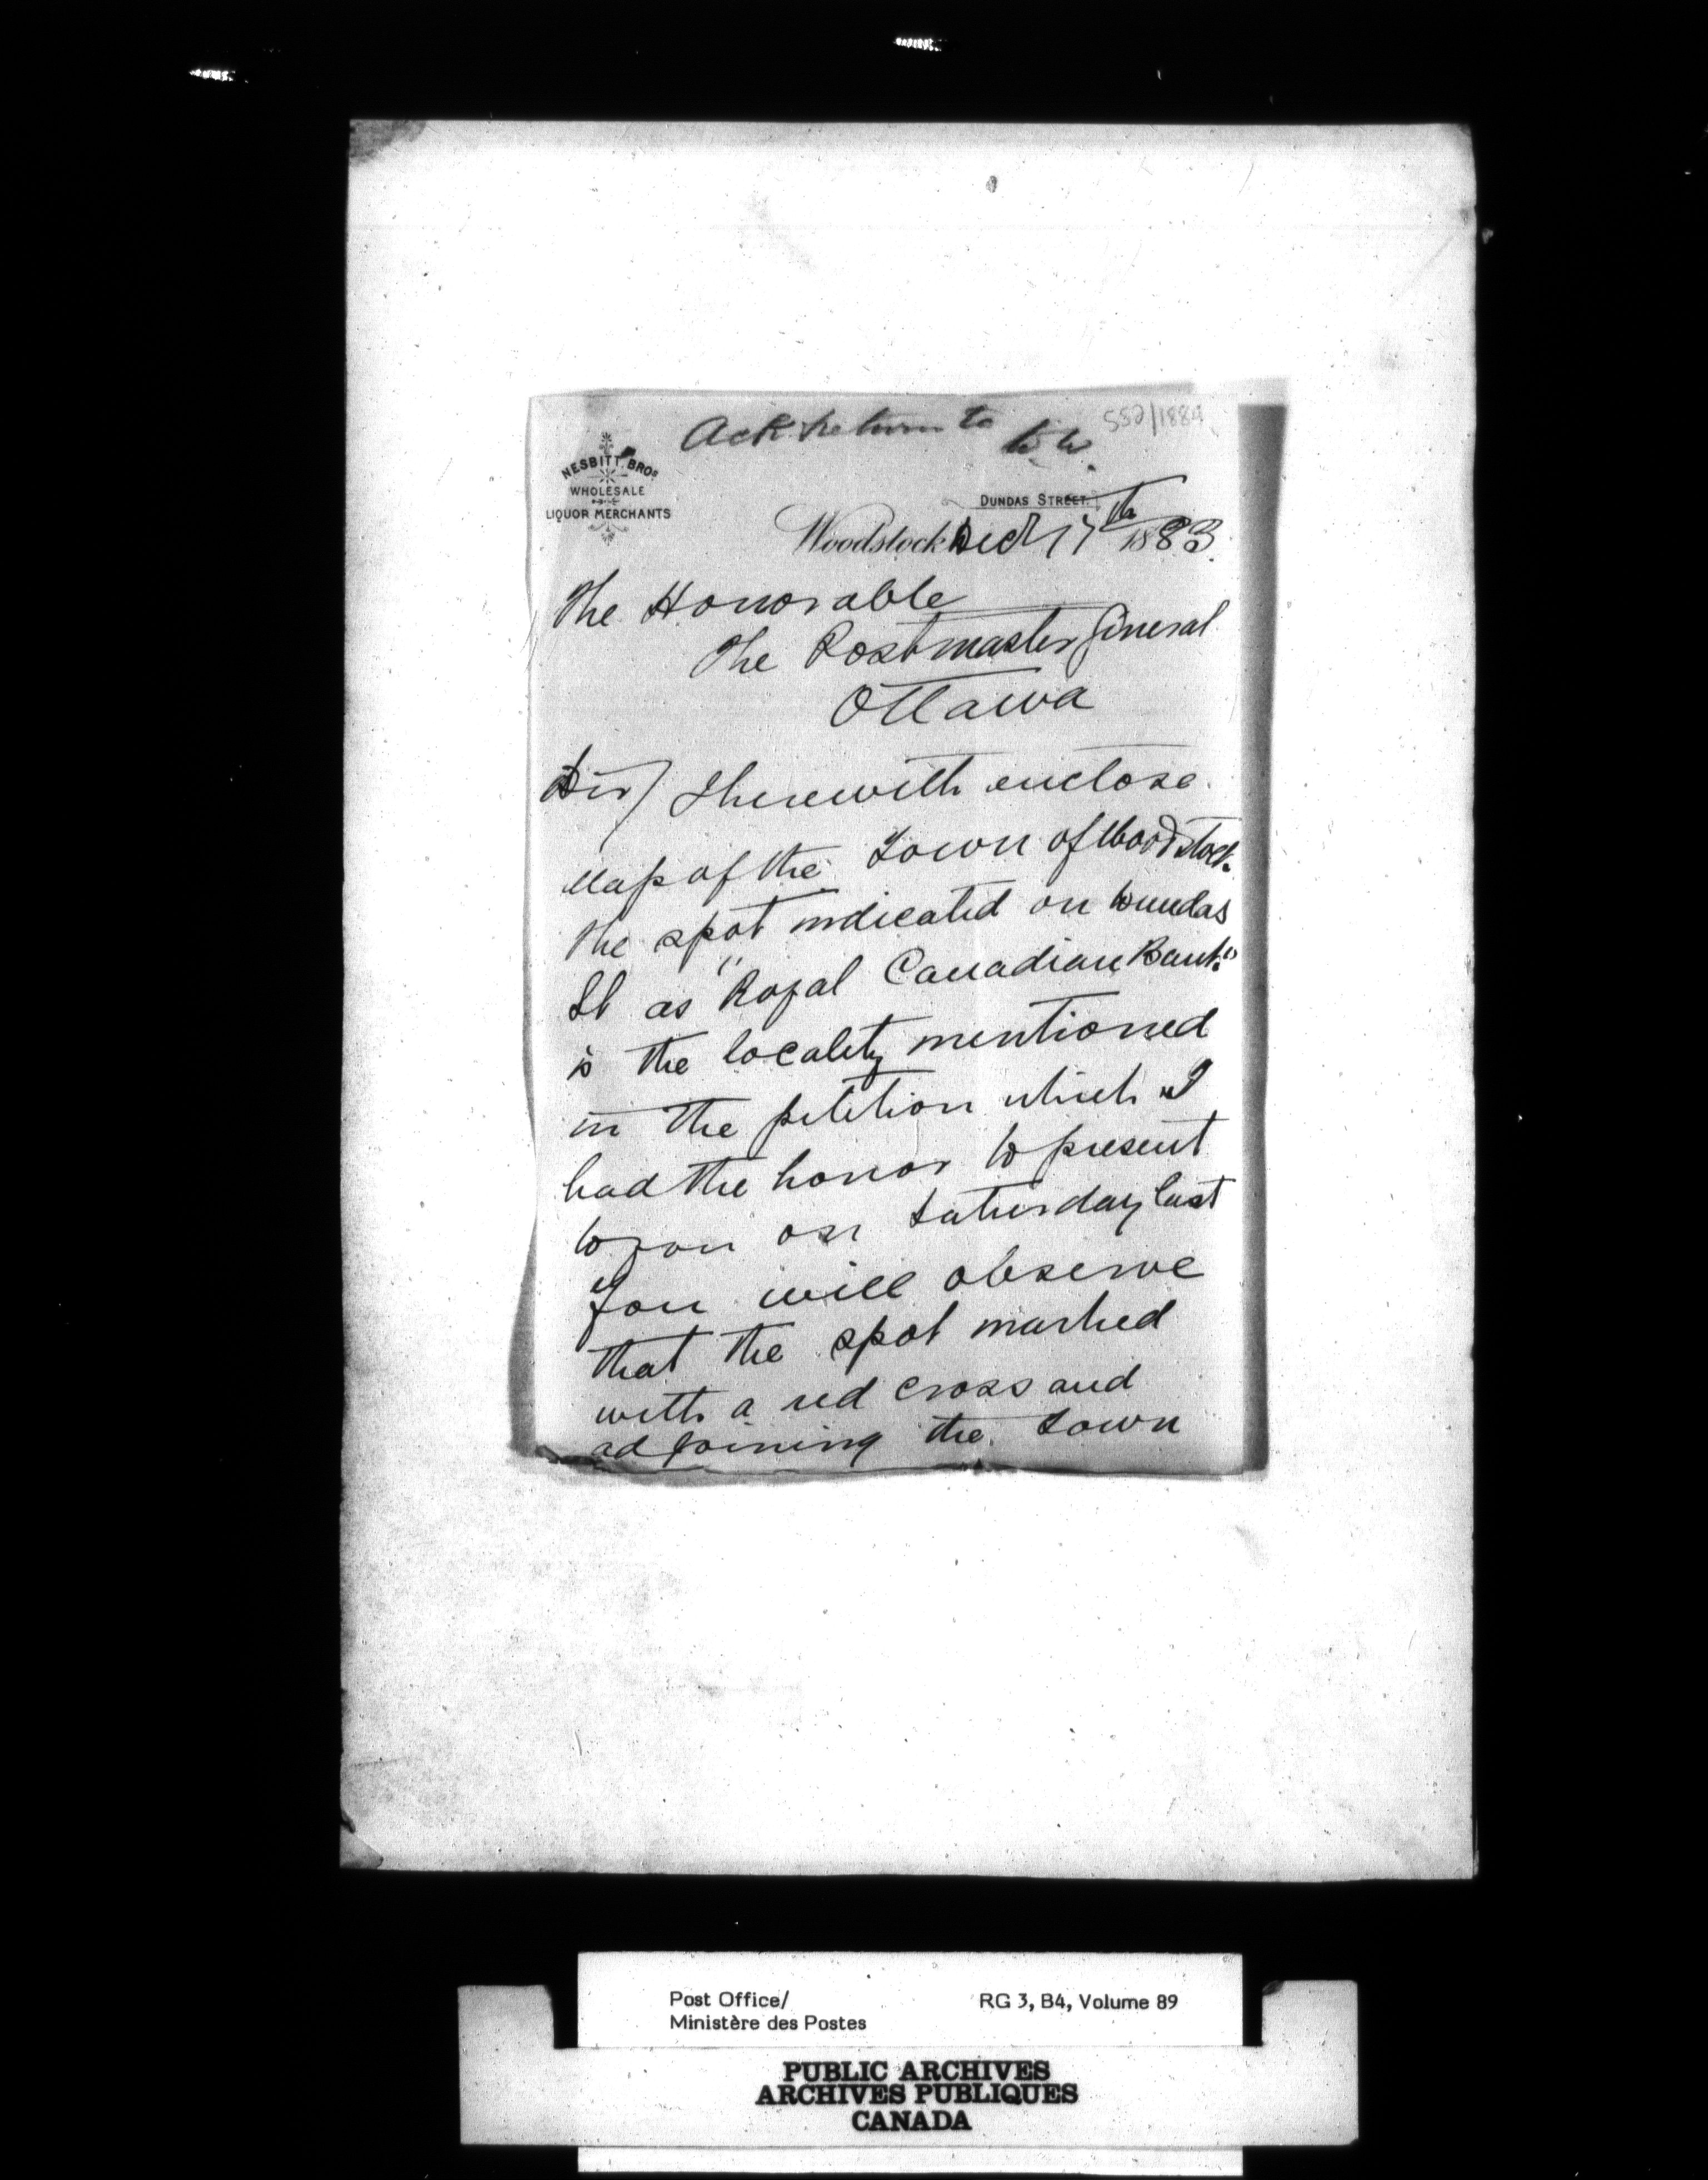 Ack return to
W.W.
552/1884
NESBITT BROS
WHOLESALE
LIQUOR MERCHANTS
DUNDAS STREET.
Woodstock Dec 17th 1883
The Honorable
The Postmaster General
Ottawa
Sir/ I herewith enclose
Map of the Town of Woodstock.
The spot indicated on Dundas
St as "Royal Canadian Bank"
is the locality mentioned
in the petition which I
had the honor to present
to you on Saturday last
You will observe
that the spot marked
with a red cross and
adjoining the Town
Post Office/
Ministère des Postes
RG 3, B4, Volume 89
PUBLIC ARCHIVES
ARCHIVES PUBLIQUES
CANADA